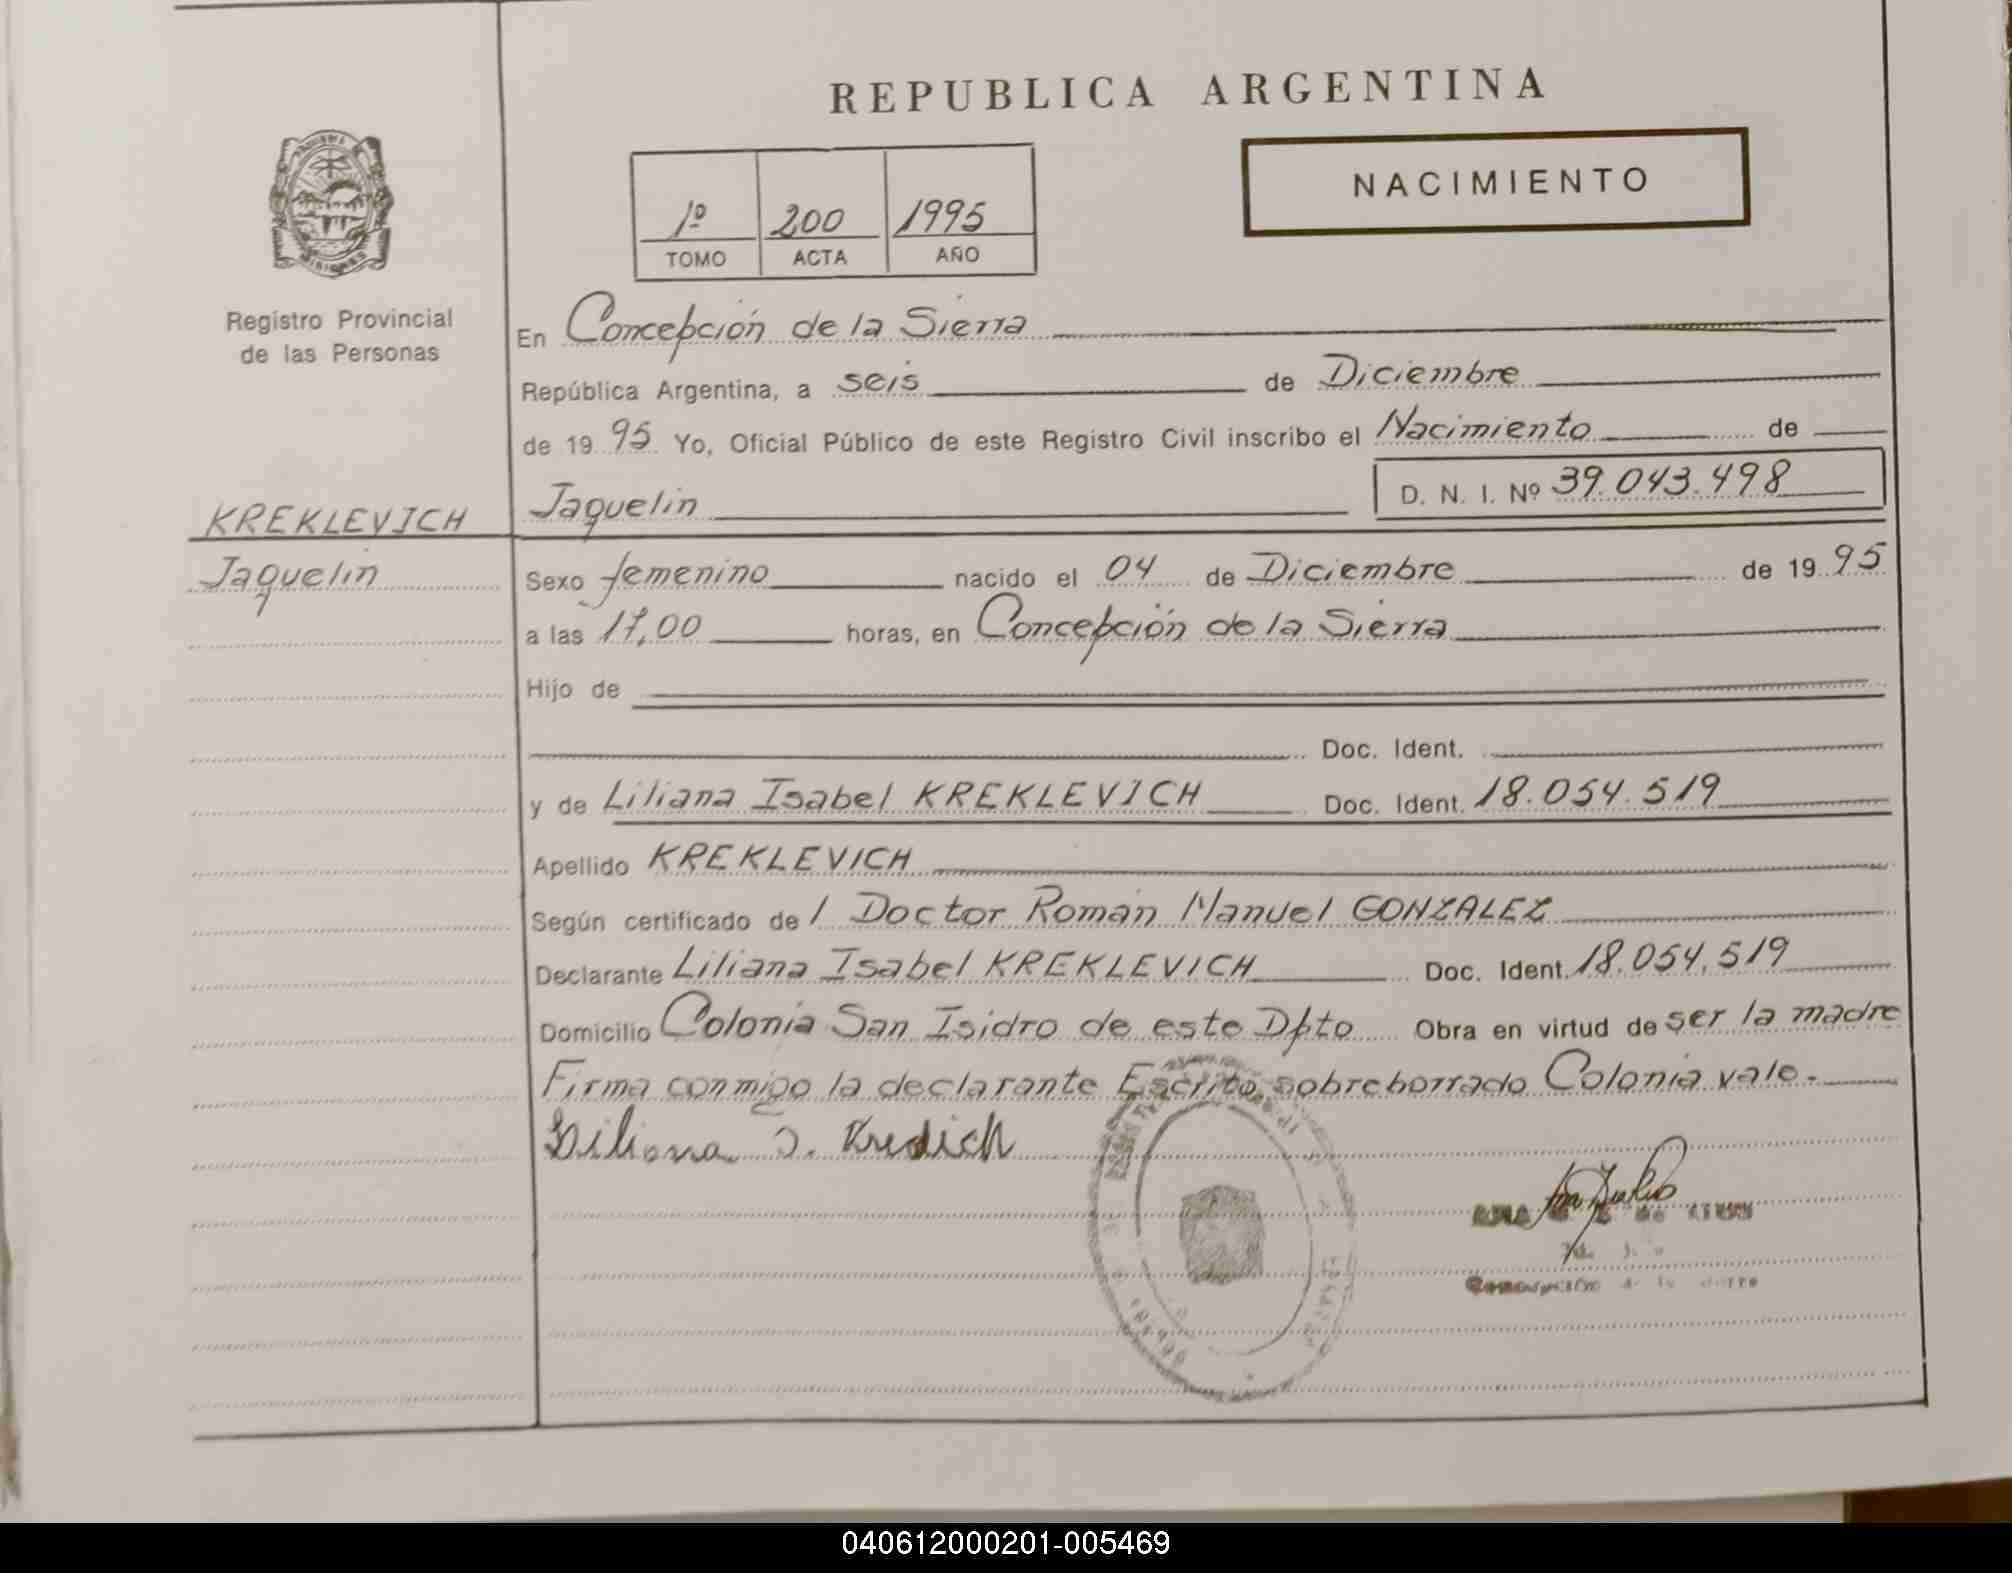 REPUBLICA ARGENTINA
NACIMIENTO
1º 200 1995
TOMO ACTA AÑO
Registro Provincial
de las Personas
En Concepción de la Sierra
República Argentina, a seis de Diciembre
de 1995 Yo, Oficial Público de este Registro Civil inscribo el Nacimiento de
D. N. I. Nº 39.043.498
KREKLEVICH
Jaquelin
Jaquelin
Sexo femenino nacido el 04 de Diciembre de 1995
a las 17,00 horas, en Concepción de la Sierra
Hijo de
Doc. Ident.
y de Liliana Isabel KREKLEVICH Doc. Ident. 18.054.519
Apellido KREKLEVICH
Según certificado de l Doctor Román Manuel GONZALEZ
Declarante Liliana Isabel KREKLEVICH Doc. Ident. 18.054.519
Domicilio Colonia San Isidro de este Dpto Obra en virtud de ser la madre
Firma conmigo la declarante Escrito sobreborrado Colonia vale.-
Liliana I.
040612000201-005469